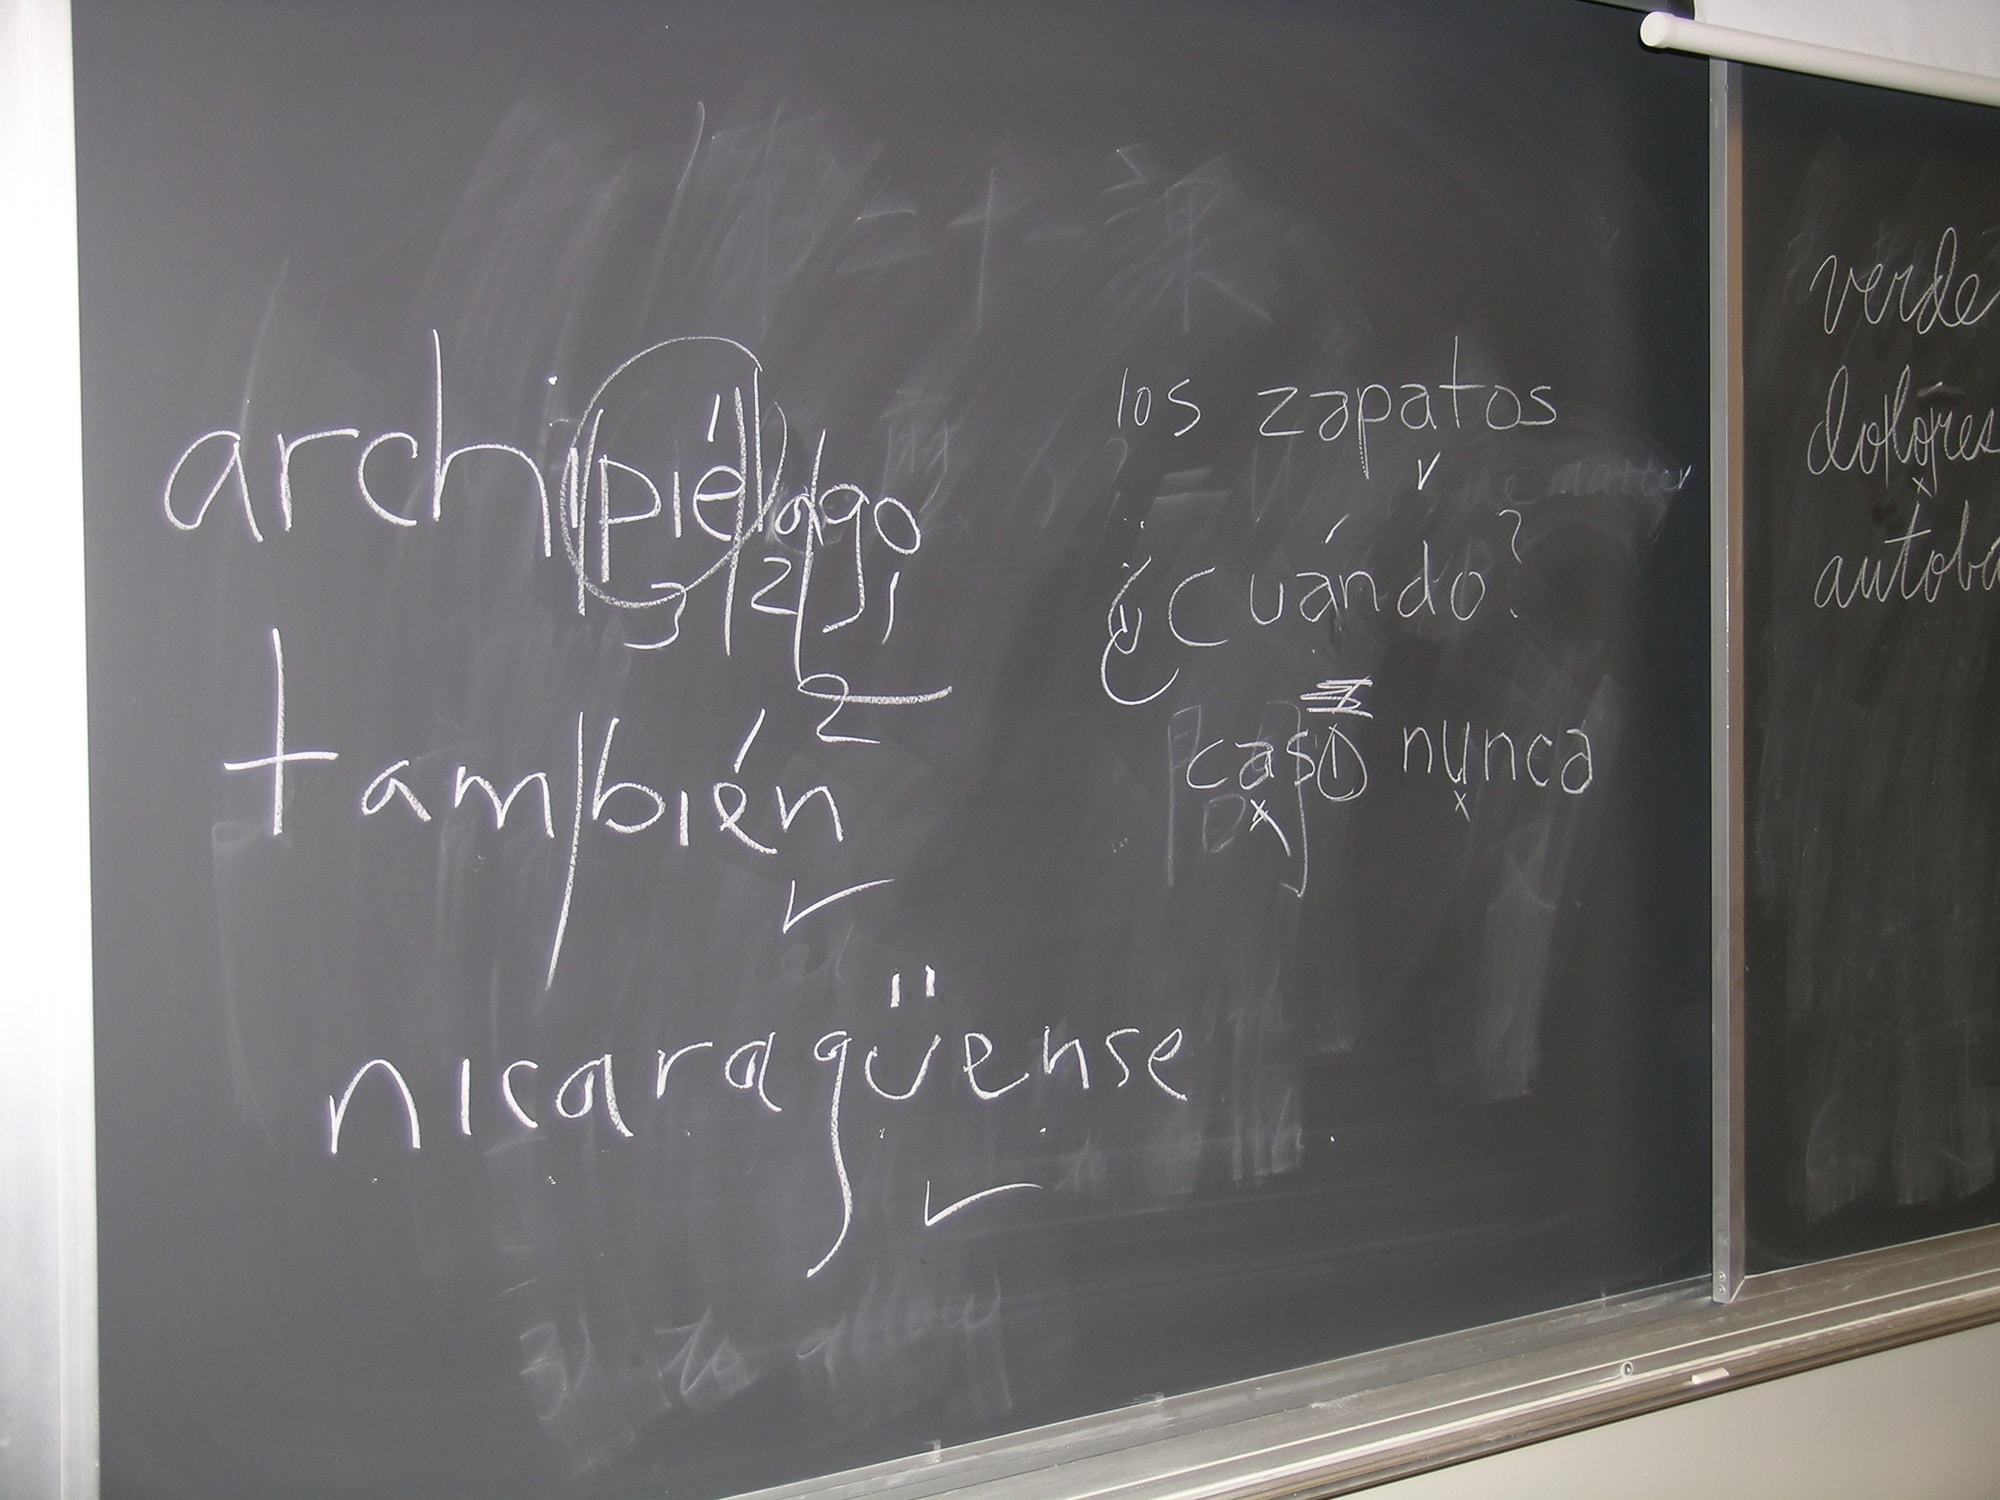 archipiélago
3 2 1
2
también
nicaragüense
los zapatos
¿Cuándo?
nunca
verde
dolores